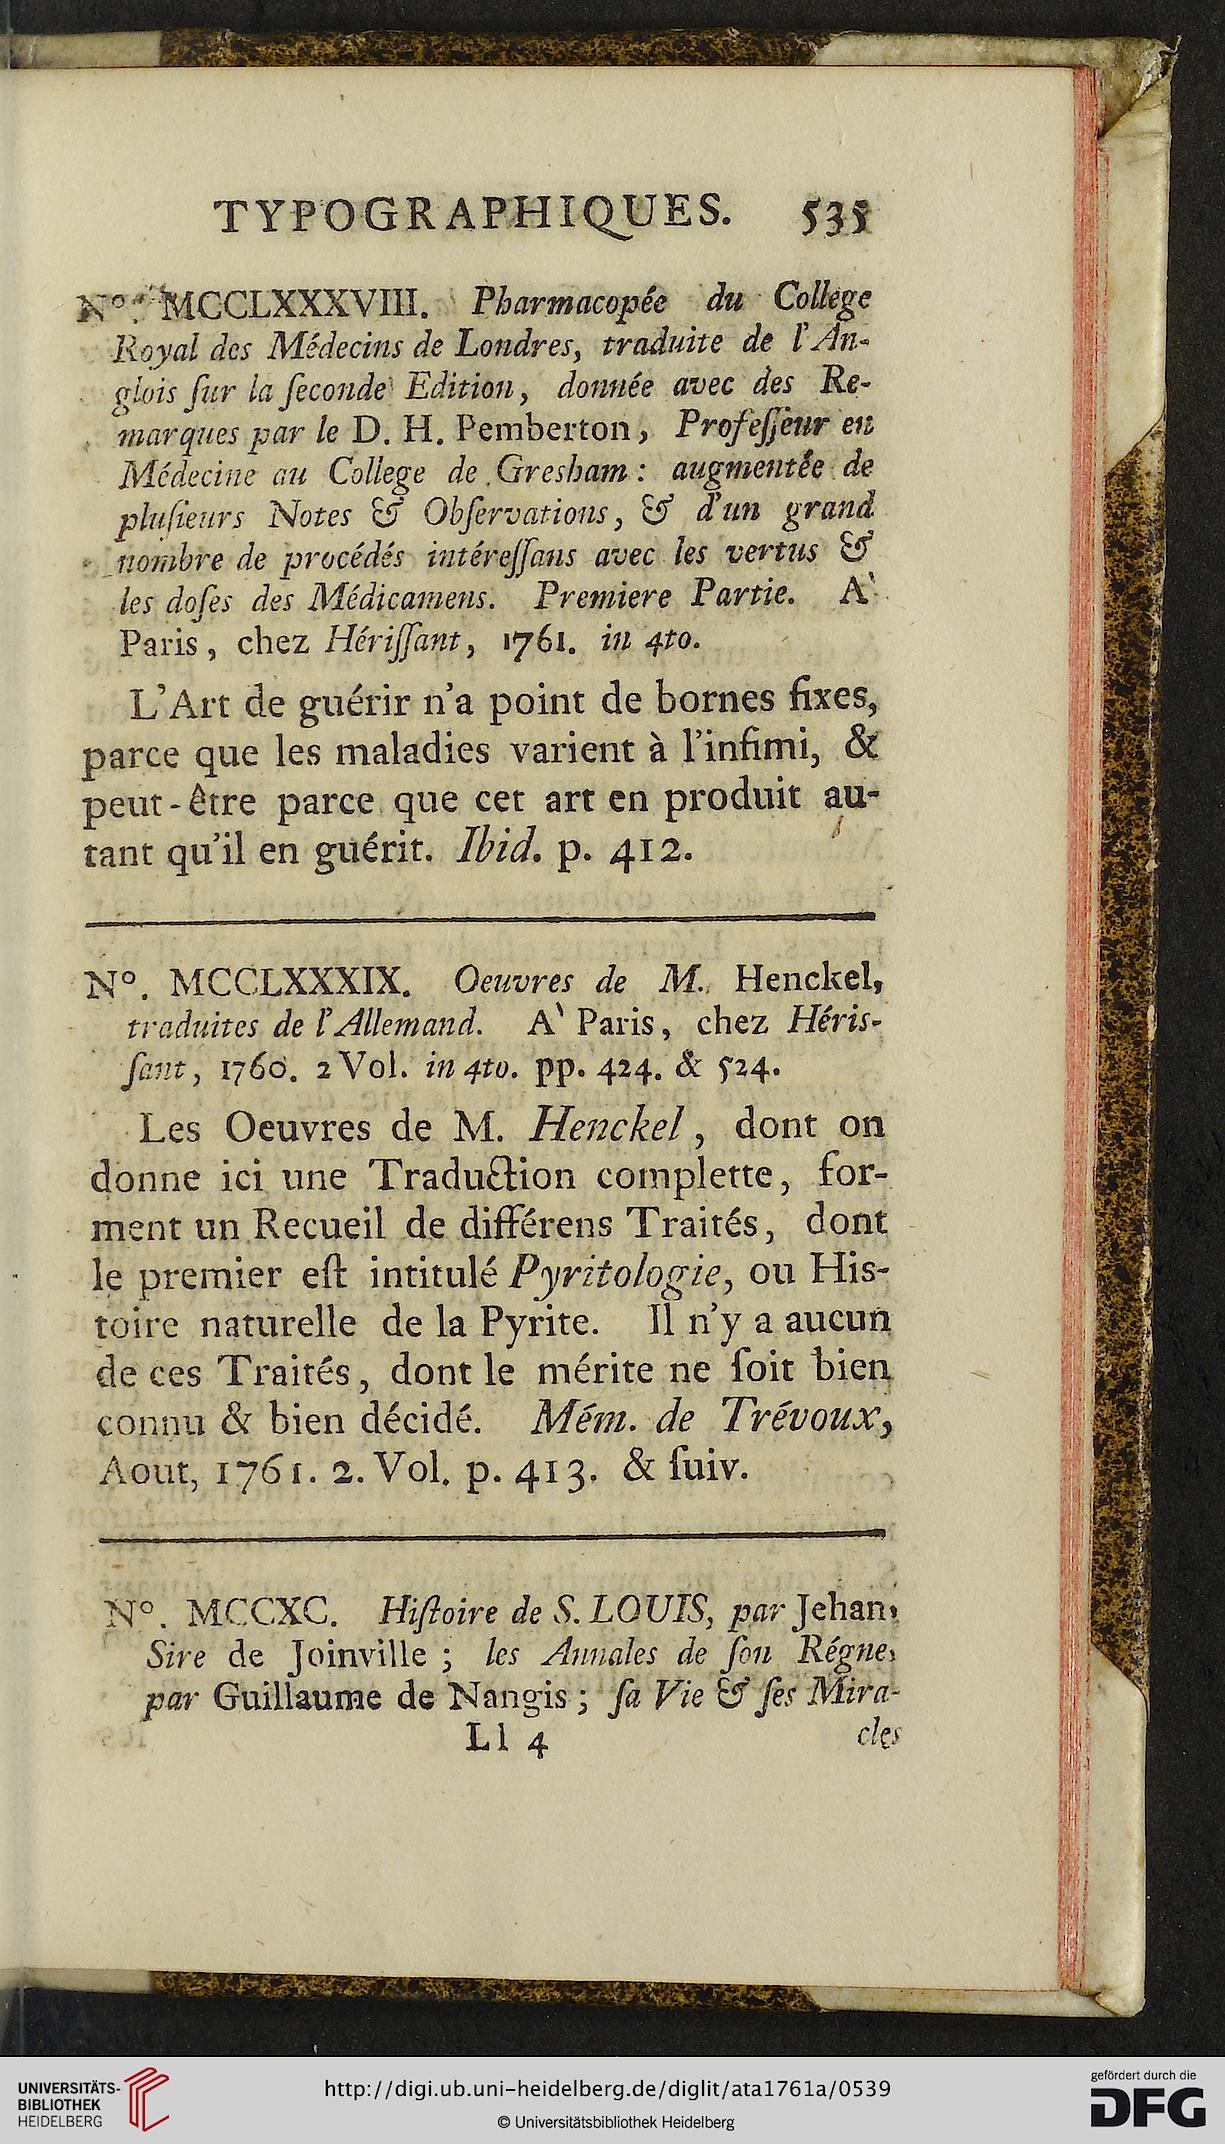 TYPOGRAPHIQUES. 535
N°. MCCLXXXVIII. Pharmacopée du College
Royal des Médecins de Londres, traduite de l'An-
glois ſur la ſeconde Edition, donnée avec des Re-
marques par le D. H. Pemberton, Profeſſeur en
Médecine au College de Gresham: augmentée de
pluſieurs Notes & Obſervations, & d'un grand
nombre de procédés intéreſſans avec les vertus &
les doſes des Médicamens. Premiere Partie. A`
Paris, chez Hériſſant, 1761. in 4to.
L'Art de guérir n'a point de bornes fixes,
parce que les maladies varient à l'infimi, &
peut-être parce que cet art en produit au-
tant qu'il en guérit. Ibid. p. 412.
N°. MCCLXXXIX. Oeuvres de M. Henckel,
traduites de l'Allemand. A` Paris, chez Héris-
ſant, 1760. 2 Vol. in 4to. pp. 424. & 524.
Les Oeuvres de M. Henckel, dont on
donne ici une Traduction complette, for-
ment un Recueil de différens Traités, dont
le premier eſt intitulé Pyritologie, ou His-
toire naturelle de la Pyrite. Il n'y a aucun
de ces Traités, dont le mérite ne ſoit bien
connu & bien décidé. Mém. de Trévoux,
Aout, 1761. 2. Vol. p. 413. & ſuiv.
N°. MCCXC. Hiſtoire de S. LOUIS, par Jehan,
Sire de Joinville; les Annales de ſon Régne,
par Guillaume de Nangis; ſa Vie & ſes Mira-
Ll 4 cles
UNIVERSITÄTS-
BIBLIOTHEK
HEIDELBERG
http://digi.ub.uni-heidelberg.de/diglit/ata1761a/0539
© Universitätsbibliothek Heidelberg
gefördert durch die
DFG